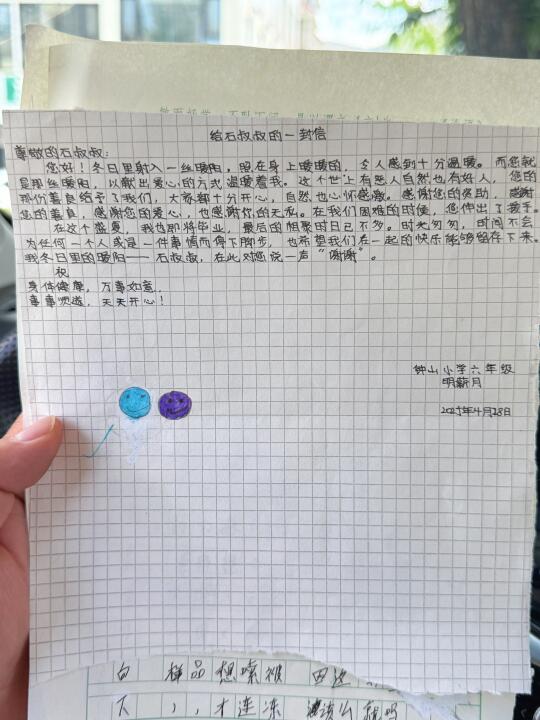 给石叔叔的一封信
尊敬的石叔叔：
您好！冬日里射入一丝暖阳，照在身上暖暖的，令人感到十分温暖。而您就
是那丝暖阳，以献出爱心的方式温暖着我。这个世上有恶人自然也有好人，您的
那份善良给予了我们，大家都十分开心，自然也心怀感激。感谢您的资助，感谢
您的善良，感谢您的爱心，也感谢你的无私。在我们困难的时候，您伸出了援手。
在这个盛夏，我也即将毕业，最后的相聚时日已不多。时光匆匆，时间不会
为任何一个人或是一件事情而停下脚步，也希望我们在一起的快乐能够留存下来。
我冬日里的暖阳——石叔叔，在此对您说一声“谢谢”。
祝
身体健康，万事如意，
事事顺遂，天天开心！
钟山小学六年级
明薪月
2025年4月28日
白 样品想嗦被